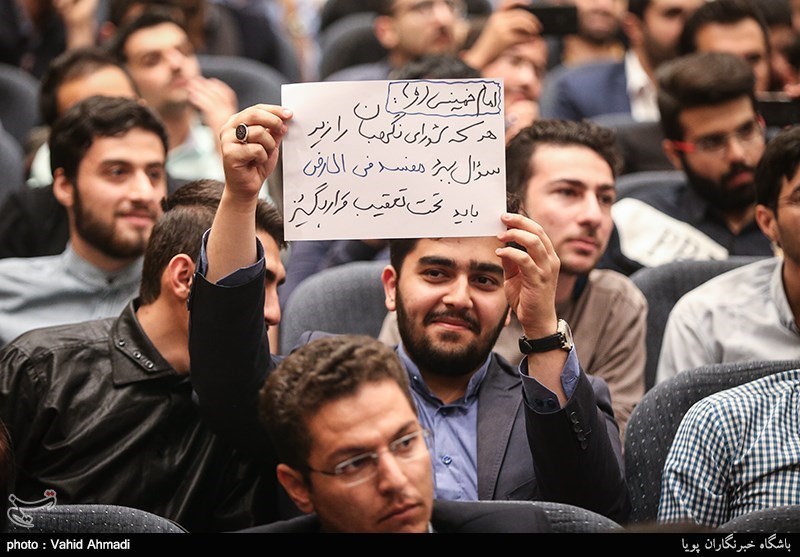 امام خمینی (ره):
هر که شورای نگهبان را زیر
سؤال ببرد مفسد فی الارض
باید تحت تعقیب قرار بگیرد
photo : Vahid Ahmadi
باشگاه خبرنگاران پویا